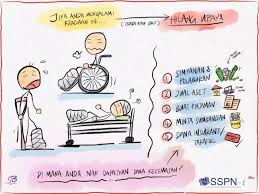 JIKA ANDA MENGALAMI
KEADAAN INI...
HILANG UPAYA
1 SIMPANAN & PELABURAN
2 JUAL ASET
3 BUAT PINJAMAN
4 MINTA SUMBANGAN
5 DANA INSURANS/
TAKAFUL
DI MANA ANDA NAK DAPATKAN DANA KECEMASAN?
SSPN-i